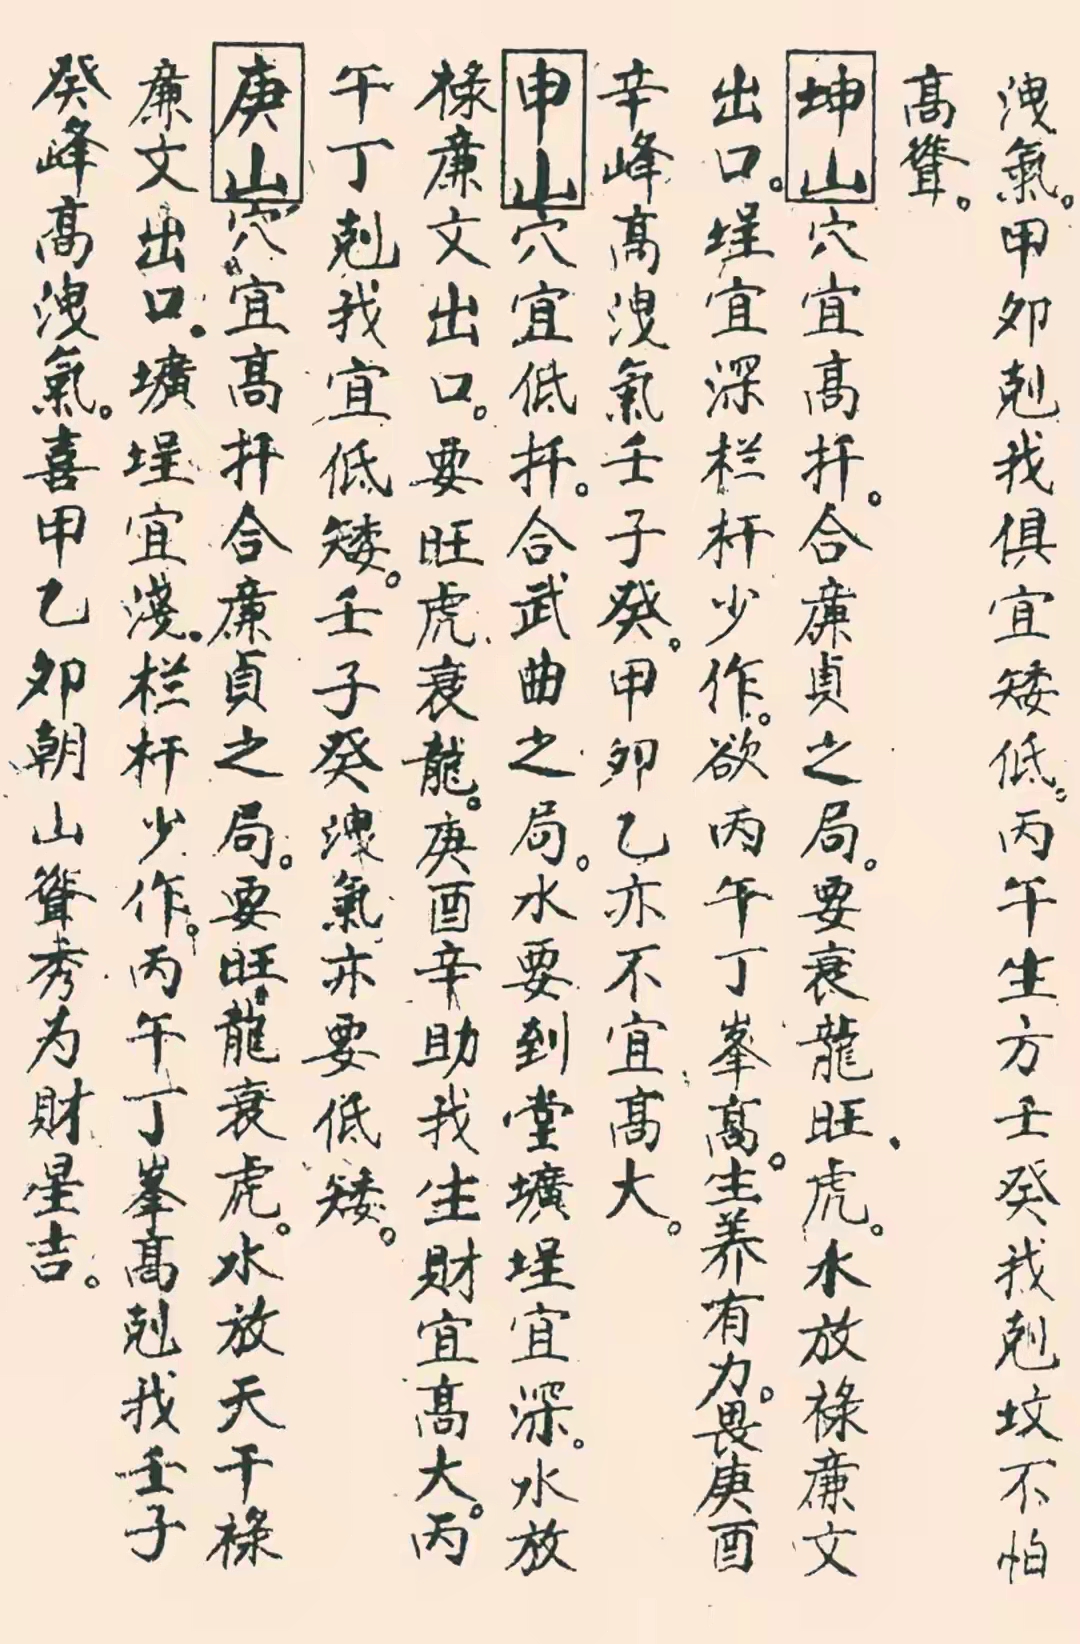 洩氣。甲卯剋我俱宜矮低。丙午生方壬癸我剋坟不怕
高聳。
坤山穴宜高扦。合廉貞之局。要衰龍旺虎。水放祿廉文
出口。埕宜深栏杆少作。欲丙午丁峯高。生养有力。畏庚酉
辛峰高洩氣壬子癸。甲卯乙亦不宜高大。
申山穴宜低扦。合武曲之局。水要到堂壙埕宜深。水放
祿廉文出口。要旺虎衰龍。庚酉辛助我生財宜高大。丙
午丁剋我宜低矮。壬子癸洩氣亦要低矮。
庚山穴宜高扦合廉貞之局。要旺龍衰虎。水放天干祿
廉文出口。壙埕宜淺。栏杆少作。丙午丁峯高剋我壬子
癸峰高洩氣。喜甲乙卯朝山聳秀为財星吉。